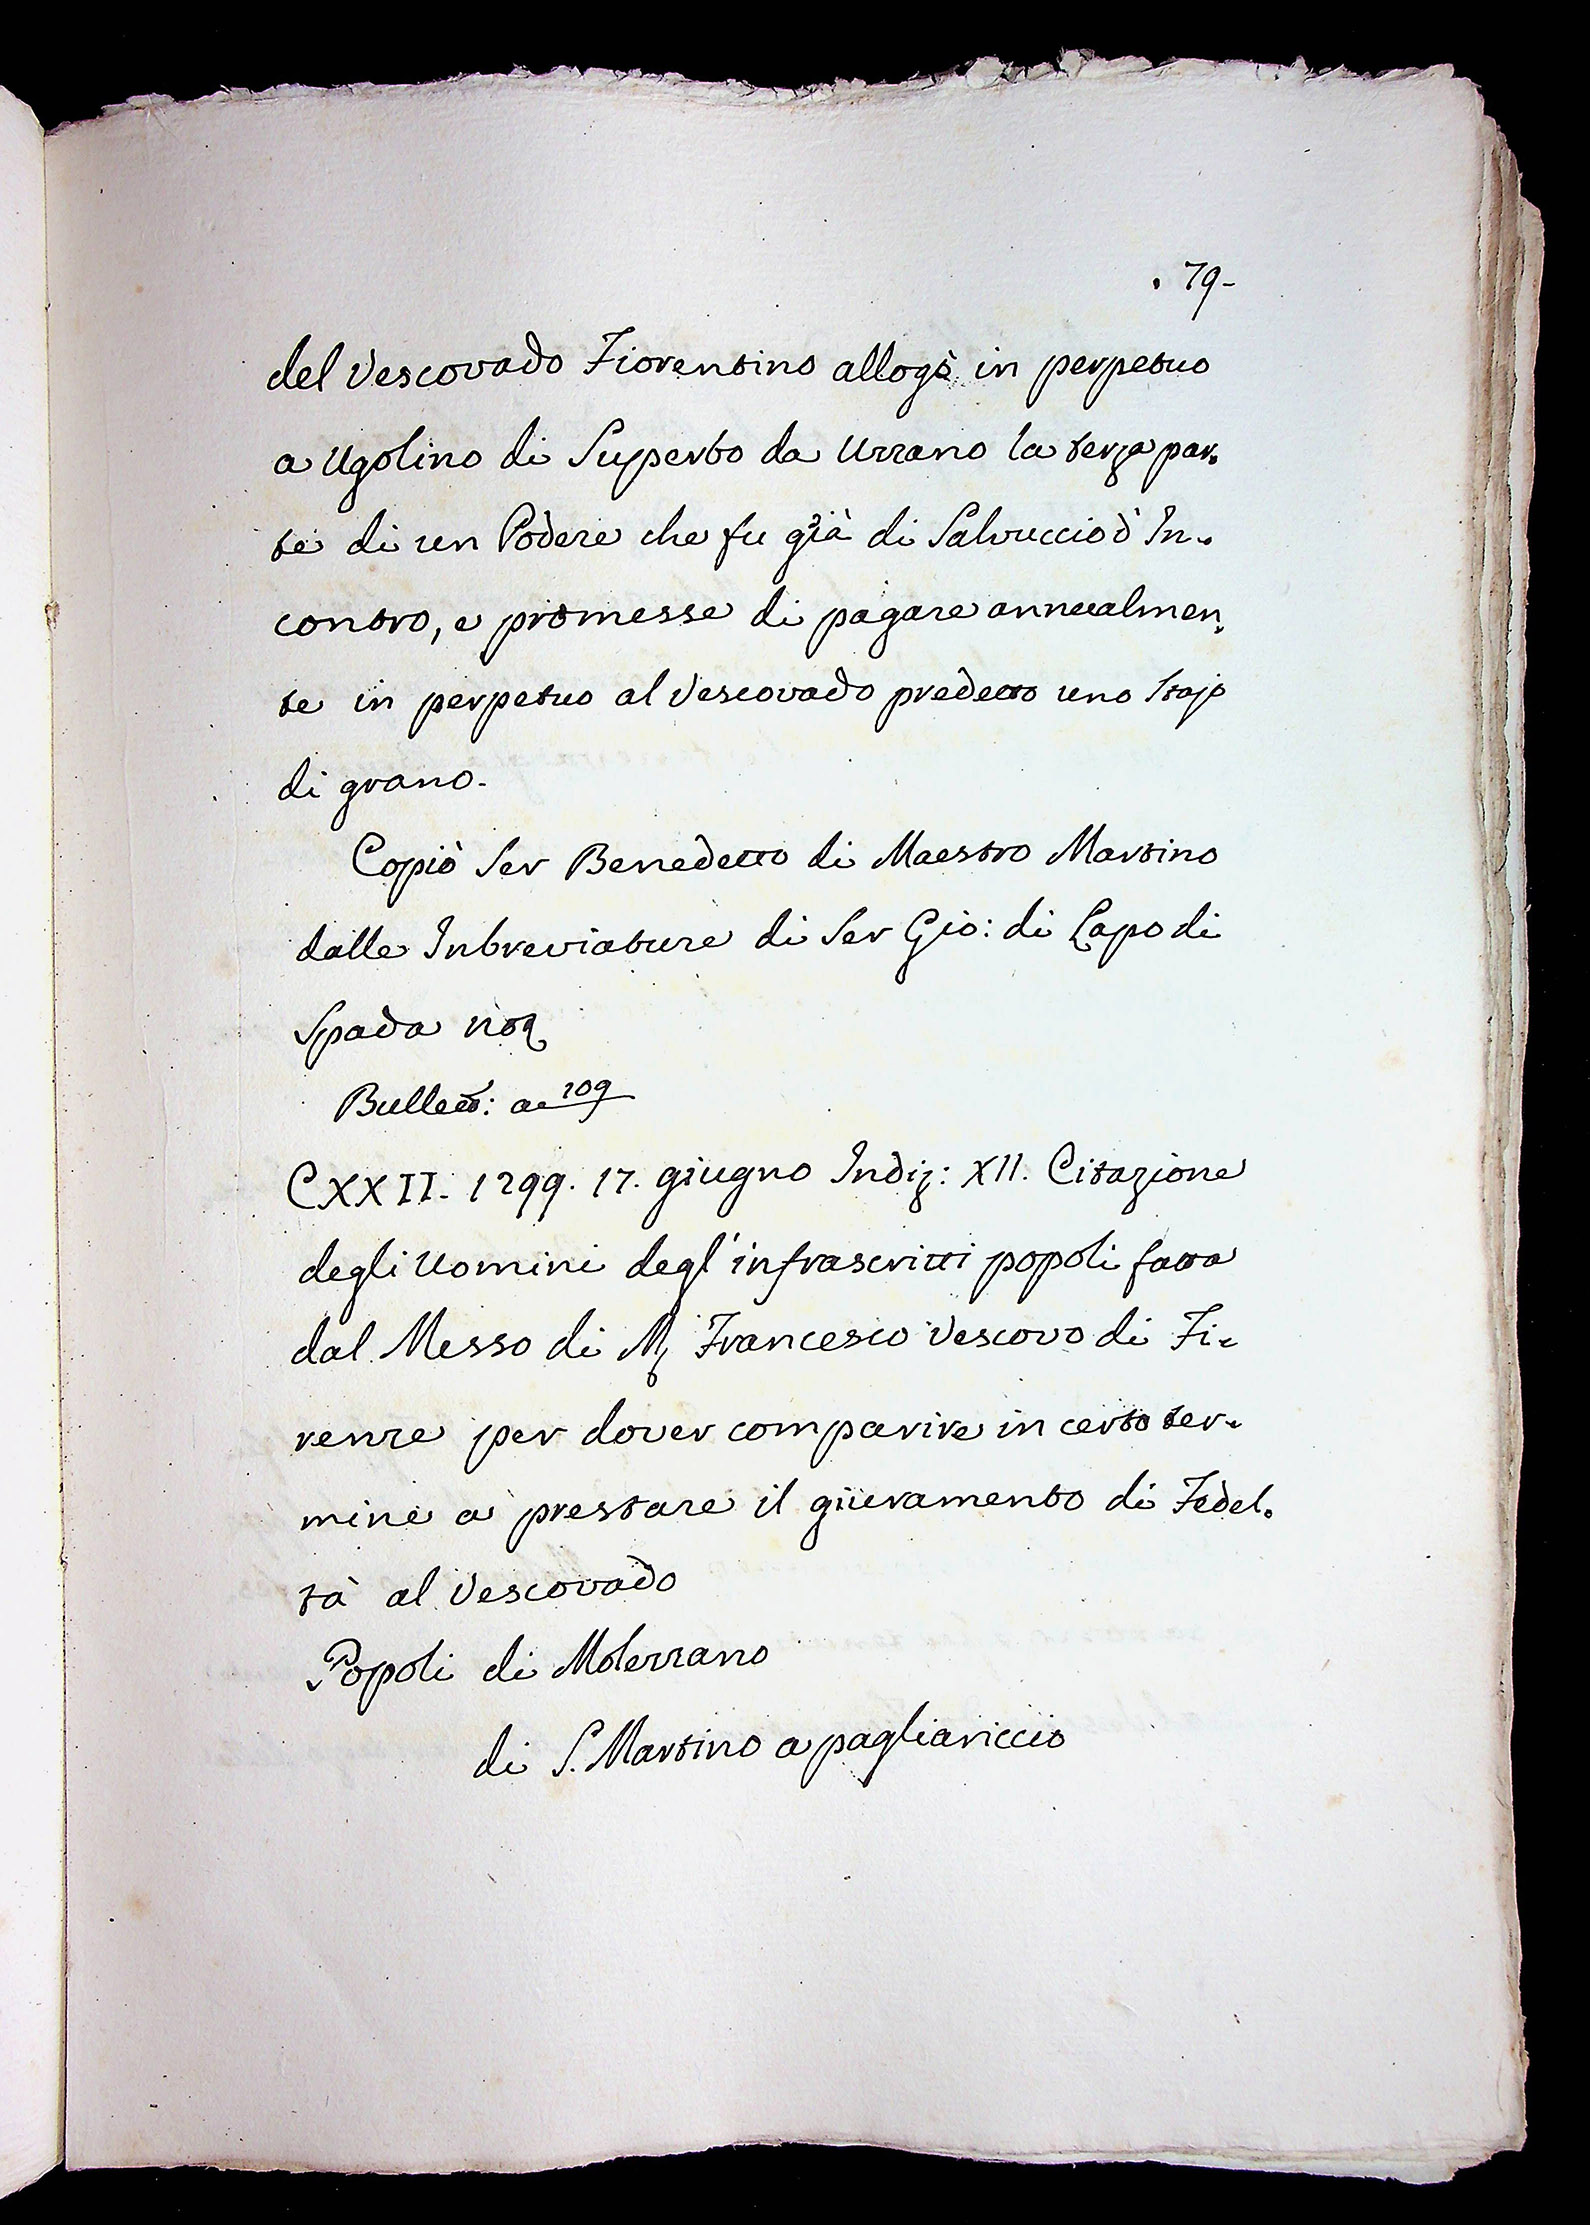 . 79-
del Vescovado Fiorentino allogò in perpetuo
a Ugolino di Superbo da Uzzano la terza par-
te di un Podere che fu già di Salvuccio d' In-
contro, e promesse di pagare annualmen-
te in perpetuo al Vescovado predetto uno Stajo
di grano.
Copiò Ser Benedetto di Maestro Martino
dalle Inbreviature di Ser Gio: di Lapo di
Spada not
Bullett: a 109
CXXII. 1299. 17. giugno Indiz: XII. Citazione
degli Uomini degl' infrascritti popoli fatta
dal Messo di M Francesco Vescovo di Fi-
renze per dover comparire in certo ter-
mine a prestare il giuramento di Fedel-
tà al Vescovado
Popoli di Molezzano
di S. Martino a pagliariccio